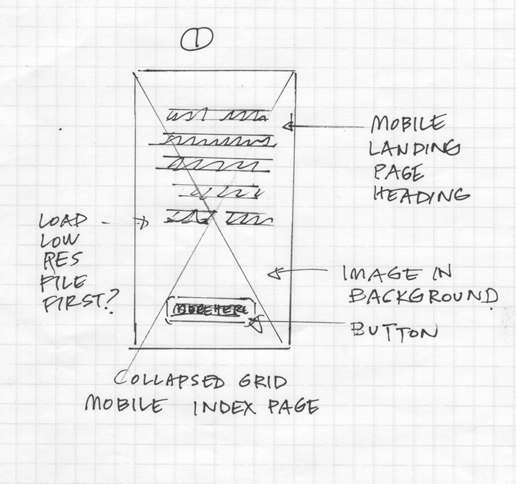 1
MOBILE
LANDING
PAGE
HEADING
LOAD
LOW
RES
FILE
FIRST?
IMAGE IN
BACKGROUND
MORE HERE
BUTTON
COLLAPSED GRID
MOBILE INDEX PAGE